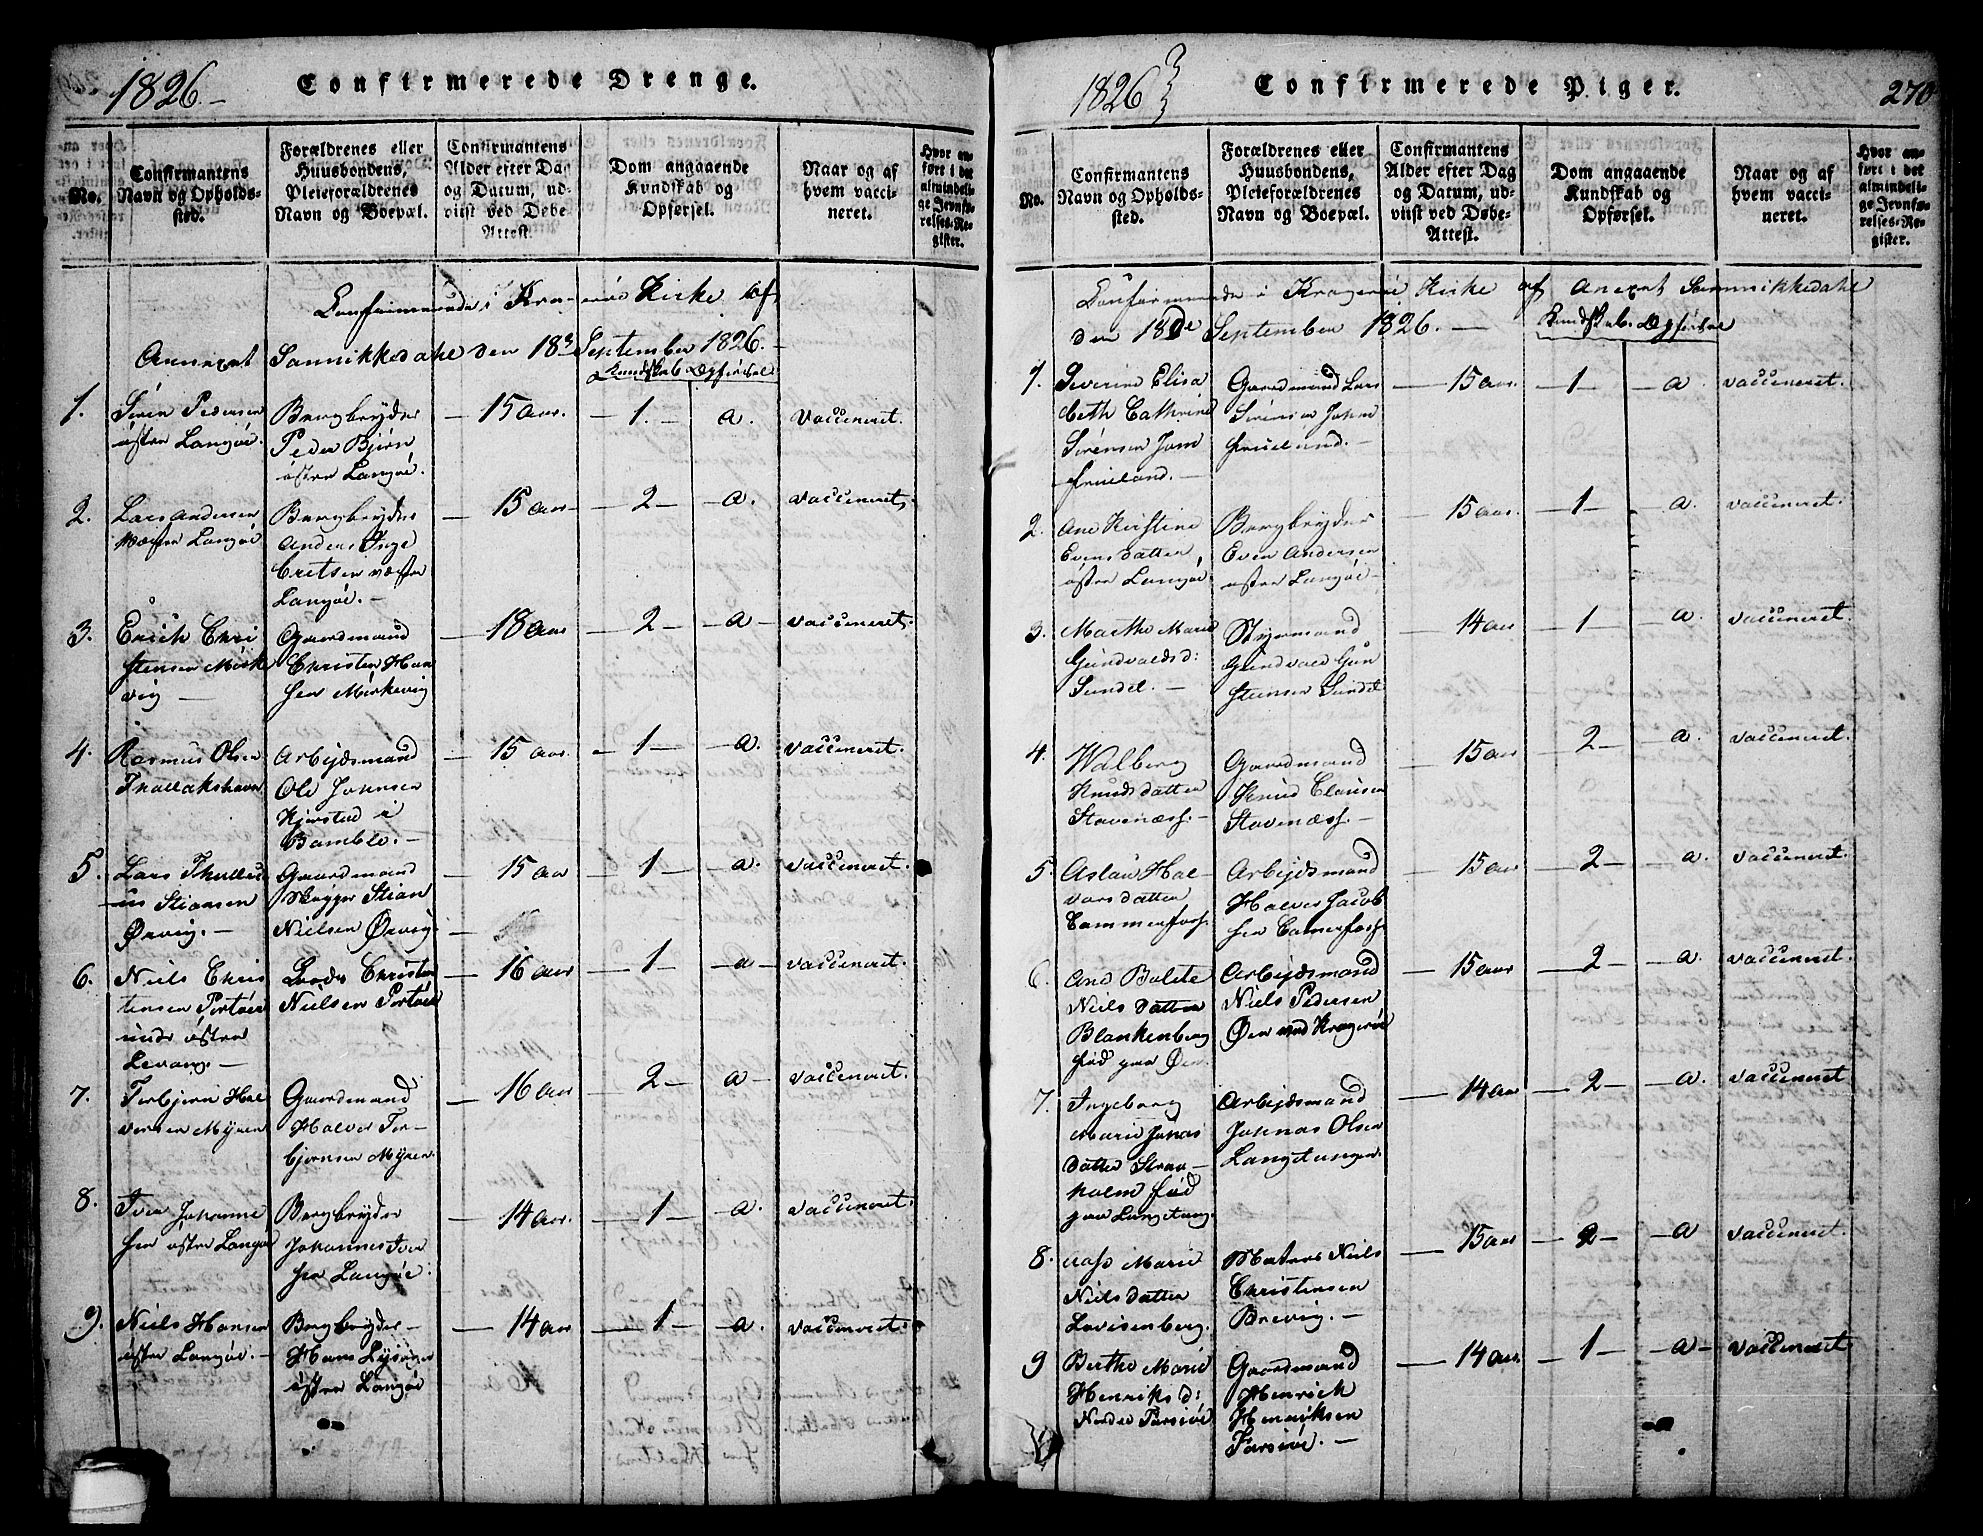 1826.
Confirmerede Drenge.
No.
Confirmantens
Navn og Opholds-
sted.
Forældrenes eller
Huusbondens,
Pleieforældrenes
Navn og Boepæl.
Confirmantens
Alder efter Dag
og Datum, ud-
viist ved Døbe-
Attest.
Dom angaaende
Kundskab og
Opførsel.
Naar og af
hvem vacci-
neret.
Hvor an-
ført i det
almindeli-
ge Jevnfø-
relses-Re-
gister.
Confirmerede i Kragerøe Kirke af
Annexet Sannikkedahl den 18de September 1826.
Kundskab. Opførsel
1. Søren Pedersen
østre Langøe.
Bergbryder
Peder Bjørn
østre Langøe.
15 Aar. 1. a. vaccineret.
2. Lars Andersen
Væstre Langøe
Bergbryder
Anders Inge
bretsen væstre
Langøe.
15 Aar 2 a. vaccineret.
3. Erich Chri
stensen Mörke
vig
Gaardmand
Christen Han
sen Mörkevig
18 Aar 2 a vaccineret.
4. Rasmus Olsen
Thollakshavn
Arbejdsmand
Ole Johnsen
Kjerstad i
Bamble.
15 Aar. 1 a. vaccineret.
5. Lars Thulli
us Stiansen
Ørvig.
Gaardmand
Skipper Stian
Nielsen Ørvig.
15 Aar 1 a. vaccineret.
6. Niels Chris
tensen Portøer
under østre
Levang.
Lods Christen
Nielsen Portøer
16 Aar 1 a vaccineret.
7. Torbjörn Hal
vorsen Myren
Gaardmand
Halvor Tor-
bjørnsen Myren.
16 Aar 2 a vaccineret.
8. Iver Johanne
sen østre Langøe
Bergbryder
Johannes Iver
sen Langøe.
14 Aar. 1 a. vaccineret.
9. Niels Hansen
østre Langøe.
Bergbryder
Hans
østre Langøe
14 Aar 1 a. vaccineret.
1826
Confirmerede Piger.
270
No.
Confirmantens
Navn og Opholds-
sted.
Forældrenes eller
Huusbondens,
Pleieforældrenes
Navn og Boepæl.
Confirmantens
Alder efter Dag
og Datum, ud-
viist ved Døbe-
Attest.
Dom angaaende
Kundskab og
Opførsel.
Naar og af
hvem vacci-
neret.
Hvor an-
ført i det
almindeli-
ge Jevnfø-
relses-Re-
gister.
Confirmerede i Kragerøe Kirke af Anexet Sannikkedahl
den 18de September 1826.
Kundskab. Opførsel
1. Severine Elisa
beth Cathrine
Sørensen Jom
frueland.
Gaardmand Lars
Sørensen Jom
frueland.
15 Aar. 1 a. vaccineret.
2. Ane Kirstine
Evensdatter
østre Langøe
Bergbryder
Even Andersen
østre Langøe
15 Aar. 1 a. vaccineret.
3. Marthe Marie
Gundvaldsd:
Sundet.
Styrmand
Gundvald Gun
stensen Sundet
14 Aar 1 a. vaccineret.
4. Walberg
Knudsdatter
Stavenæss.
Gaardmand
Knud Clausen
Stavenæss.
15 Aar 2 a. vaccineret.
5. Aslau Hal-
vorsdatter
Cammerfoss.
Arbejdsmand
Halvor Jacob
sen Camerfoss
15 Aar 2 a. vaccineret.
6. Ane Bolete
Nielsdatter
Blankenberg
fød paa Øen.
Arbejdsmand
Niels Pedersen
Øen ved Kragerøe
15 Aar 2 a. vaccineret.
7. Ingeborg
Marie Jonas
datter Straa-
holm fød
paa Langetang.
Arbejdsmand
Johnas Olsen
Langetangen
14 Aar 2 a. vaccineret
8. Aase Marie
Nielsdatter
Lovisenberg.
Matros Niels
Christensen
Brevig.
15 Aar 2 a vaccineret.
9 Berthe Marie
Henriksd:
Nordre Farsiöe
Gaardmand
Henrich
Henriksen
Farsiöe.
14 Aar. 1 a vaccineret.